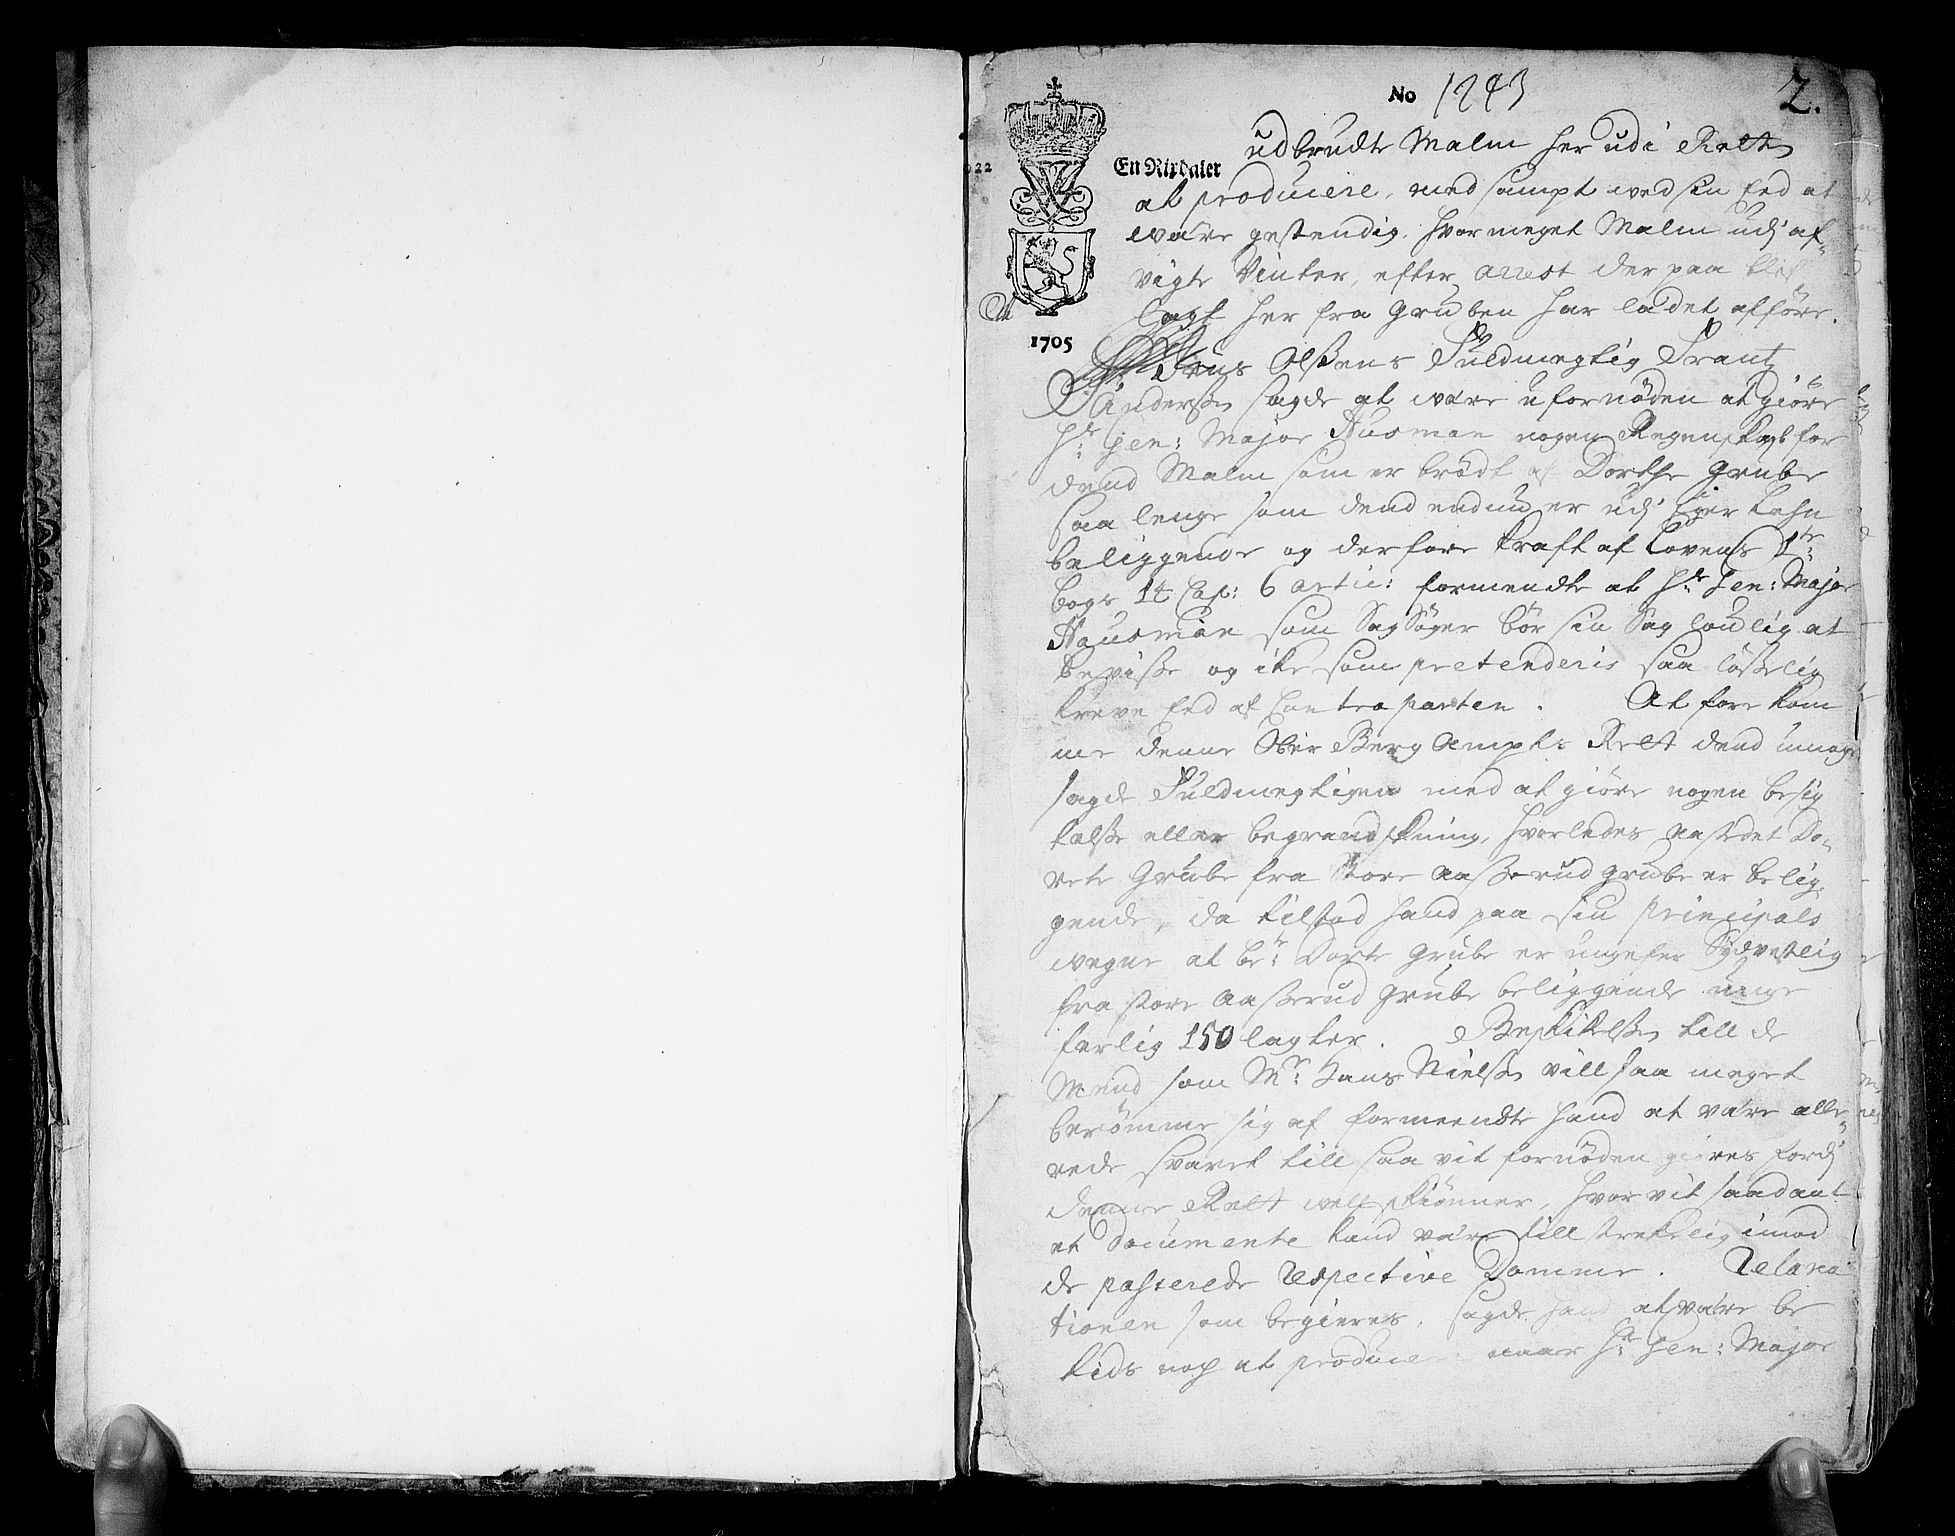 No 1243
2.
22
En Rixdaler
1705
udbrudte Malm her udi Rette
at producere, med sampt ved sin Eed at
være gestendig, hvor meget Malm udj af-
vigte Vinter, efter arrest der paa blef
lagt her fra Gruben har ladet afføre.
Sr: Jens Olsens Fuldmegtig Frantz
Andersen sagde at være ufornøden at giøre
Hr: Gen: Major Husman nogen Regenskab for
dend Malm som er brødt af Dorthe Grube
saa lenge som dend endnu er udj Eger Lehn
beliggende og derfore kraft af Lovens 1te:
bogs 14 Cap: 6 artic: formendte at Hr: Gen: Major
Hausman som Sag Søger bør sin Sag lovlig at
bevisse og ike som pretenderis saa løsselig
kreve Eed af Contraparten. At forekom
me denne Ober Berg Ampts Rett dend umage
sagde Fuldmegtigen med at giøre nogen besig
telse eller begrandskning, hvorledes aastedet Do-
rete Grube fra Store Aasserud grube er belig
gende, da tilstod hand paa sin principals
vegne at be:te Dorte Grube er ungefer Sydvestlig
fra store Aasserud Grube beliggende unge
ferlig 150 lagter. Beskikelsen till de
Mend som Mr: Hans Nielsen vill saa meget
berømme sig af formeendte hand at være alle-
rede svaret till saa vit fornøden giøres fordj
denne Rett well skiønner, hvor vit saadant
et Documente kand være till strekelig imod
de passerede respective Domme. Relaxa
tionen som begieres, sagde hand at være be
tids nog at producere naar Hr: Gen: Major